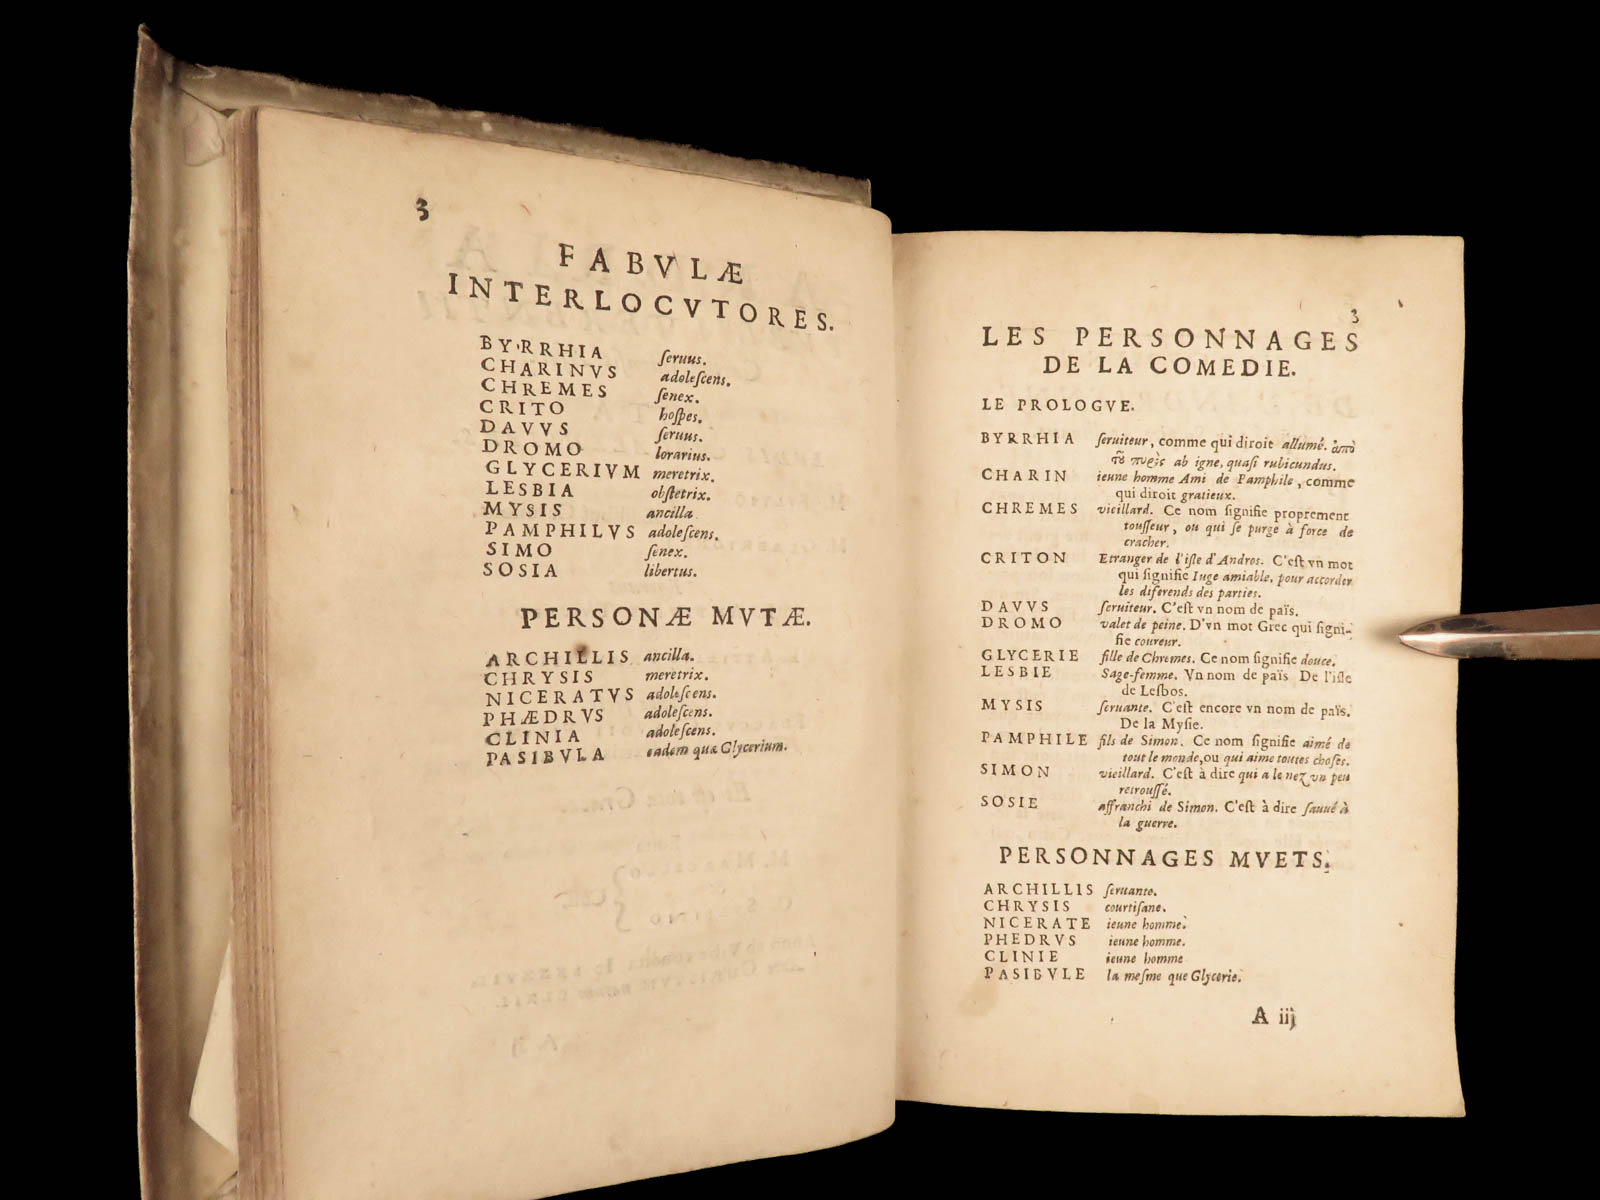 3
FABVLÆ
INTERLOCVTORES.
BYRRHIA ſeruus.
CHARINVS adoleſcens.
CHREMES ſenex.
CRITO hoſpes.
DAVVS ſeruus.
DROMO lorarius.
GLYCERIVM meretrix.
LESBIA obſtetrix.
MYSIS ancilla.
PAMPHILVS adoleſcens.
SIMO ſenex.
SOSIA libertus.
PERSONÆ MVTÆ.
ARCHILLIS ancilla.
CHRYSIS meretrix.
NICERATVS adoleſcens.
PHÆDRVS adoleſcens.
CLINIA adoleſcens.
PASIBVLA eadem quæ Glycerium.
3
LES PERSONNAGES
DE LA COMEDIE.
LE PROLOGVE.
BYRRHIA ſeruiteur, comme qui diroit allumé. ἀπὸ
τȣ͂ πυρὸς ab igne, quaſi rubicundus.
CHARIN ieune homme Ami de Pamphile, comme
qui diroit gratieux.
CHREMES vieillard. Ce nom ſignifie proprement
touſſeur, ou qui ſe purge à force de
cracher.
CRITON Etranger de l'iſle d'Andros. C'eſt vn mot
qui ſignifie Iuge amiable, pour accorder
les diferends des parties.
DAVVS ſeruiteur. C'eſt vn nom de païs.
DROMO valet de peine. D'vn mot Grec qui ſigni-
fie coureur.
GLYCERIE fille de Chremes. Ce nom ſignifie douce.
LESBIE Sage-femme. Vn nom de païs De l'iſle
de Leſbos.
MYSIS ſeruante. C'eſt encore vn nom de païs.
De la Myſie.
PAMPHILE fils de Simon. Ce nom ſignifie aimé de
tout le monde, ou qui aime toutes choſes.
SIMON vieillard. C'eſt à dire qui a le nez vn peu
retrouſſé.
SOSIE affranchi de Simon. C'eſt à dire ſauué à
la guerre.
PERSONNAGES MVETS.
ARCHILLIS ſeruante.
CHRYSIS courtiſane.
NICERATE ieune homme.
PHEDRVS ieune homme.
CLINIE ieune homme
PASIBVLE la meſme que Glycerie.
A iij